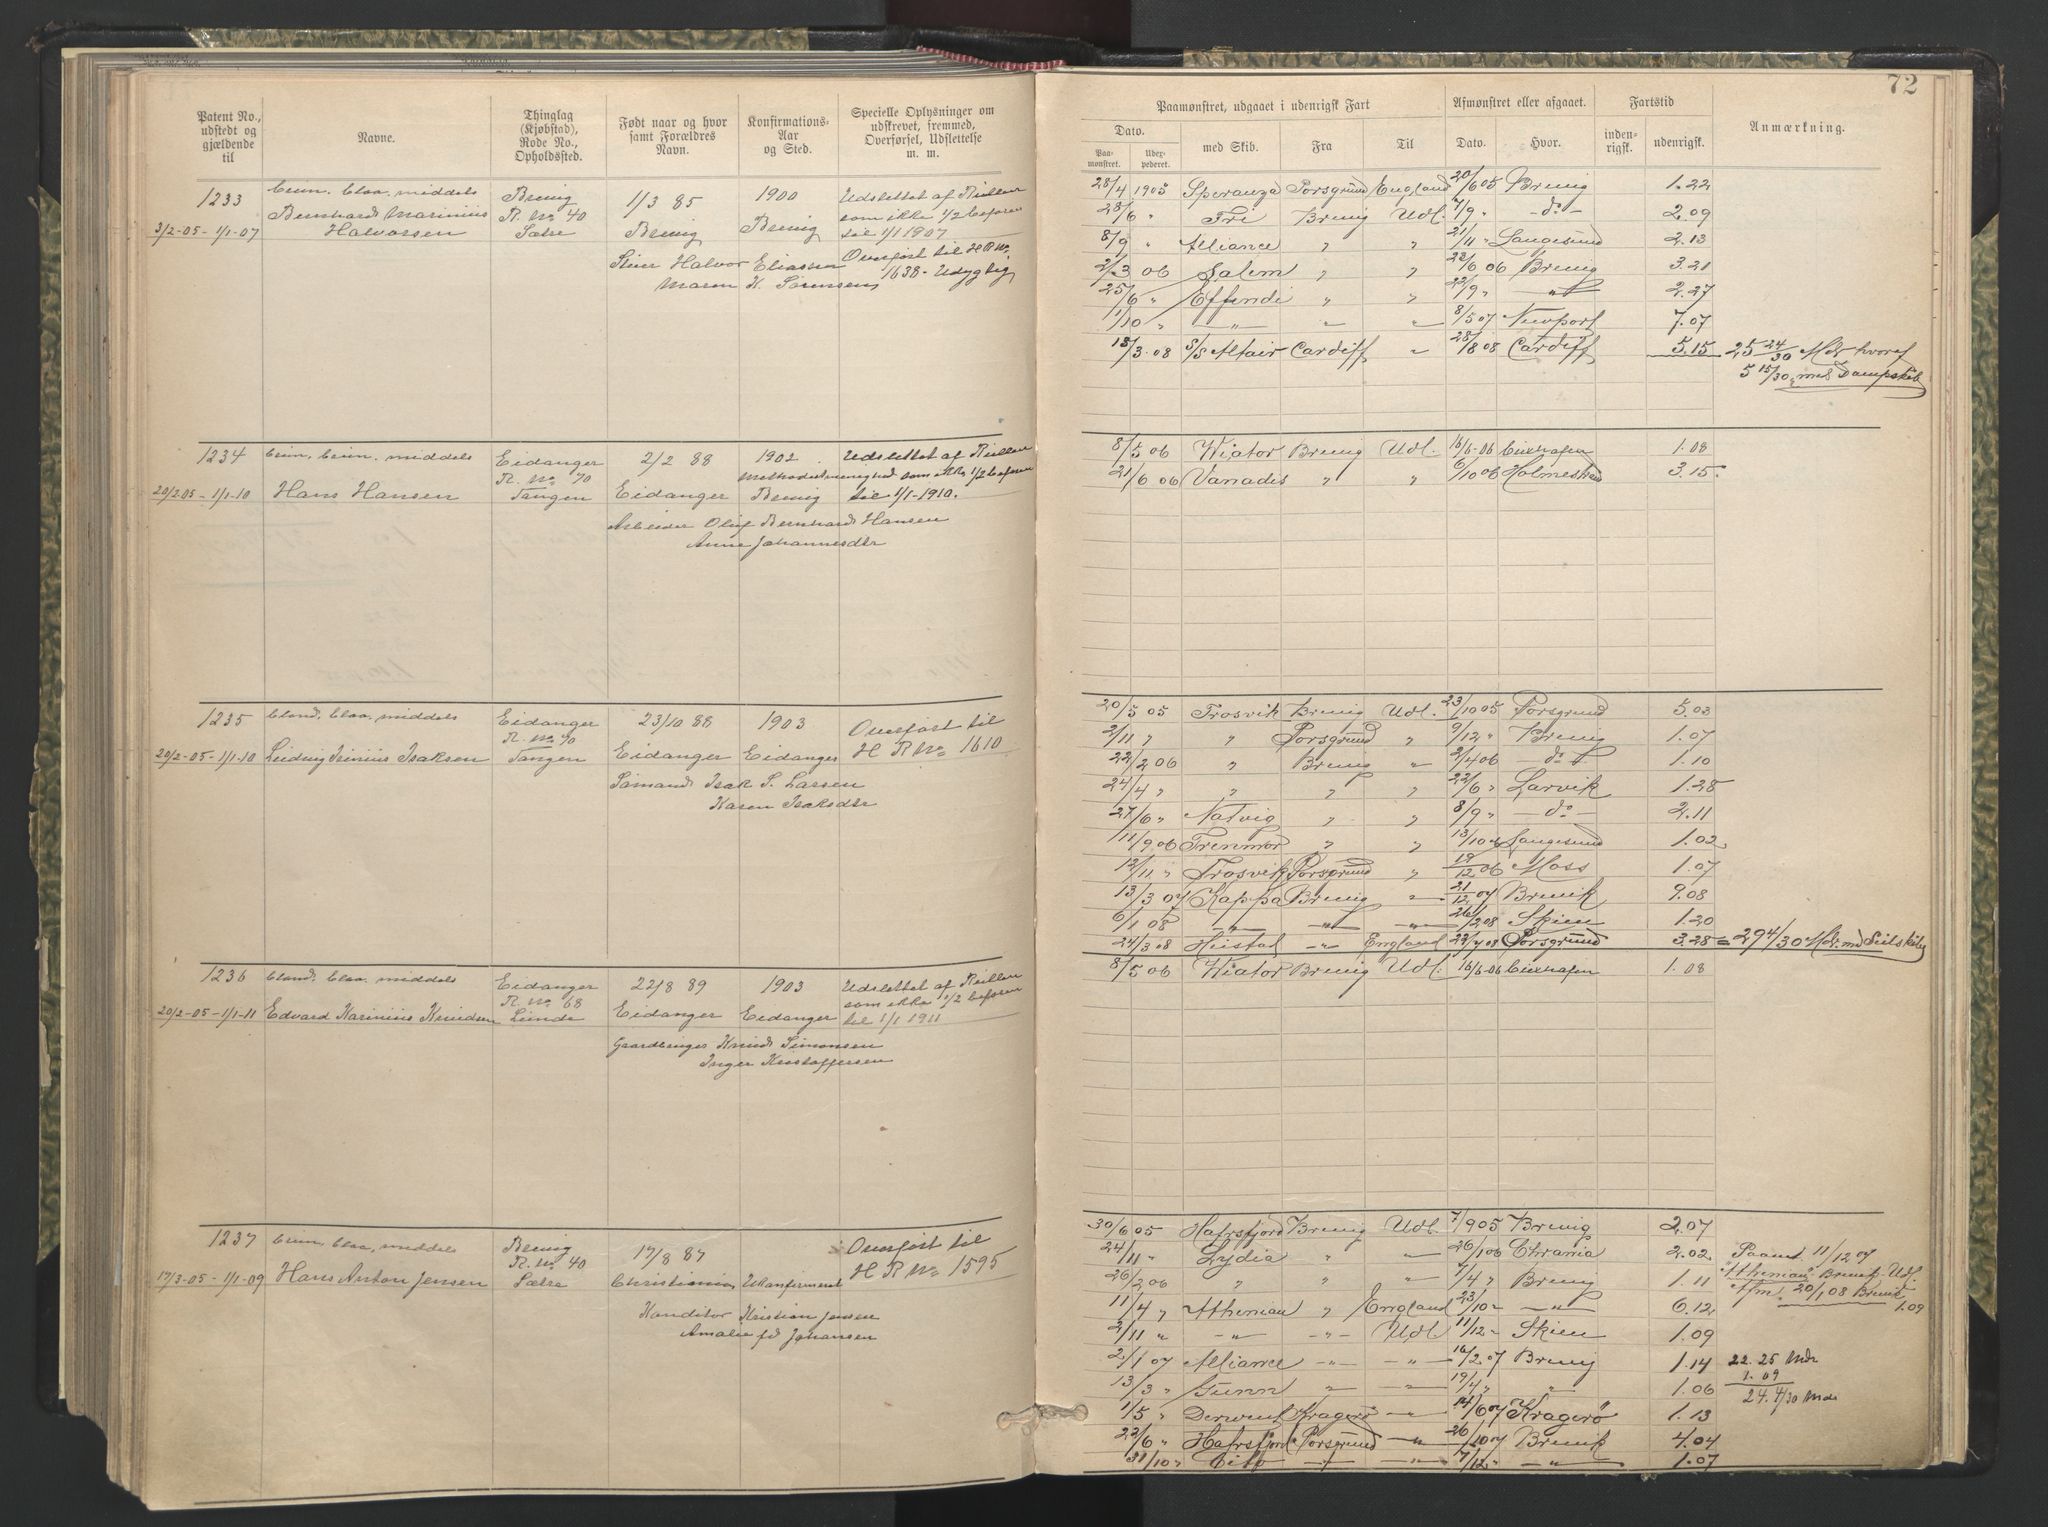 72
Patent No., udstedt og gjældende til
Navne.
Thinglag (Kjøbstad), Rode No., Opholdssted.
Født naar og hvor samt Forældres Navn.
Konfirmations-Aar og Sted.
Specielle Oplysninger om udskrevet, fremmed, Overførsel, Udslettelse m. m.
Paamønstret, udgaaet i udenrigsk Fart
Afmønstret eller afgaaet.
Fartstid
Anmærkning.
Dato.
Paa-mønstret.
Uder-pederet.
med Skib.
Fra
Til
Dato.
Hvor.
inden-rigsk.
udenrigsk.
1233
3/2-05-1/1-07
middels
Bernhard Marinius
Halvorsen
Brevig
R. No 40
Sætre
1/3 85
Brevig
1900
Brevig
Udslettet af Rullen
som ikke 1/2 befaren
til 1/1 1907
Overført til H R No
1638 - Udygtig
Halvor Eliassen
Maren K. Sørensen
28/4 1905 Speranza Porsgrund England 20/6 05 Brevig 1.22
28/6 " Fri Brevig Udl. 7/9 " - do - 2.09
8/9 " Alliance " " 21/11 " Langesund 2.13
2/3 06 Salem " " 22/6 06 Brevig 3.21
25/6 " Effendi " " 22/9 " - " - 2.27
1/10 " - " - " " 8/5 07 Newport 7.07
13/3 08 S/S Altair Cardiff " 28/8 08 Cardiff 5.15
25 24/30 Mdr hvoraf
5 15/30 med Dampskib
1234
20/2 05 - 1/1-10
middels
Hans Hansen
Eidanger
R. No 70
Tangen
2/2 88
Eidanger
1902
Methodistmenighed
Brevig
Udslettet af Rullen
som ikke 1/2 befaren
til 1/1-1910.
Arbeider Oluf Bernhard Hansen
Anne Johannesdtr
8/5 06 Wiator Brevig Udl. 16/6-06 Cuxhafen 1.08
21/6 06 Vanadis " " 6/10 06 Holmestrand 3.15
1235
20/2-05-1/1-10
middels
Ludvig Isinius Isaksen
Eidanger
R. No 70
Tangen
23/10 88
Eidanger
1903
Eidanger
Overført til
H R No 1610
Sømand Isak S. Larsen
Karen Isaksdtr
20/5 05 Trosvik Brevig Udl. 23/10 05 Porsgrund 5.03
2/11 " " Porsgrund " 9/12 " Brevig 1.07
22/2 06 " Brevig " 2/4 06 - do - 1.10
24/4 " " " " 22/6 " Larvik 1.28
27/6 " Natvig " " 8/9 " - do - 2.11
11/9 06 Trenmor " " 13/10 06 Langesund 1.02
12/11 " Trosvik Porsgrund " 19/12 06 Moss 1.07
13/3 07 Kappa Brevig " 21/12 07 Brevik 9.08
6/1 08 - " - - " - - " - 26/2 08 Skien 1.20
24/3 08 Heistad - " - England 22/7 08 Porsgrund 3.28 = 29 4/30 Mdr. med Seilskib
1236
20/2-05-1/1-11
middels
Edvard Karinius Knudsen
Eidanger
R. No 68
Lunde
22/8 89
Eidanger
1903
Eidanger
Udslettet af Rullen
som ikke 1/2 befaren
til 1/1 1911
Gaardbruger Knud Simonsen
Inger Kristoffersen
8/5 06 Wiator Brevig Udl. 16/6-06 Cuxhafen 1.08
1237
17/3-05-1/1-09
middels
Hans Anton Jensen
Brevig
R. No 40
Sætre
17/8 87
Christiania
Ukonfirmeret
Overført til
H R No 1595
Konditor Kristian Jensen
Amalie fd Johansen
30/6 05 Hafrsfjord Brevig Udl. 7/9 05 Brevig 2.07
24/11 " Lydia " " 26/1 06 Chrania 2.02
26/2 06 " " " 7/4 " Brevig 1.11
11/4 " Athenian " England 23/10 " - " - 6.12
2/11 " - " - - " - Udl 11/12 " Skien 1.09
2/1 07 Alliance - " - - " - 16/2 07 Brevig 1.14
13/3 " Gunn " - " - 19/4 " " 1.06
1/5 " Derwent Kragerø - " - 14/6 07 Kragerø 1.13
22/6 " Hafrsfjord Porsgrund - " - 26/10 07 Brevik 4.04
31/10 " Tito - " - - " - 7/12 " - " - 1.07
Paamt. 11/12 07
"Athenian" Brevik - Udl.
Afm. 20/1 08 Brevik
1.09
22.25 Mdr
1.09
24. 4/30 Mdr